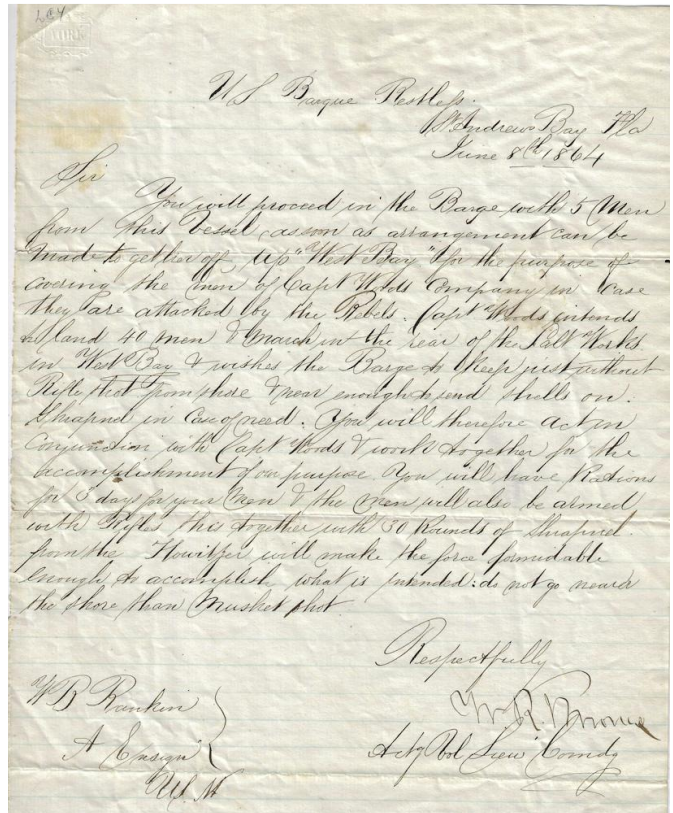 U S Barque Restless.
St Andrews Bay Fla
June 8th 1864
Sir
You will proceed in the Barge with 5 Men
from this Vessel, as soon as arrangement can be
made to get her off, up "West Bay" for the purpose of
covering the men of Capt Woods Company in case
they are attacked by the Rebels. Capt Woods intends
to land 40 men & march in the rear of the Salt Works
in West Bay & wishes the Barge to keep just without
Rifle shot from shore & near enough to send shells or
Shrapnel in case of need. You will therefore act in
conjunction with Capt Woods & work together for the
accomplishment of our purpose. You will have Rations
for 3 days for your Men & the men will also be armed
with Rifles this together with 30 Rounds of Shrapnel
from the Howitzer will make the force formidable
enough to accomplish what is intended: do not go nearer
the shore than Musket shot.
Respectfully
W B Rankin
Wm R. Browne
A Ensign
Actg Vol Lieu' Comdg
U.S.N